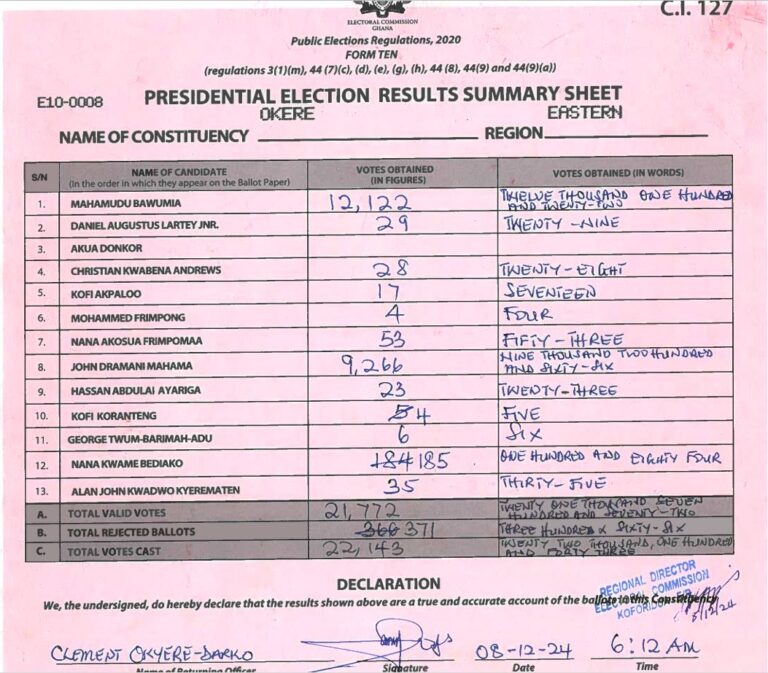 C.I. 127
ELECTORAL COMMISSION
GHANA
Public Elections Regulations, 2020
FORM TEN
(regulations 3(1)(m), 44 (7)(c), (d), (e), (g), (h), 44 (8), 44(9) and 44(9)(a))
E10-0008 PRESIDENTIAL ELECTION RESULTS SUMMARY SHEET
OKERE EASTERN
NAME OF CONSTITUENCY REGION
S/N NAME OF CANDIDATE (In the order in which they appear on the Ballot Paper) VOTES OBTAINED (IN FIGURES) VOTES OBTAINED (IN WORDS)
1. MAHAMUDU BAWUMIA 12,122 TWELVE THOUSAND ONE HUNDRED AND TWENTY-TWO
2. DANIEL AUGUSTUS LARTEY JNR. 29 TWENTY-NINE
3. AKUA DONKOR
4. CHRISTIAN KWABENA ANDREWS 28 TWENTY-EIGHT
5. KOFI AKPALOO 17 SEVENTEEN
6. MOHAMMED FRIMPONG 4 FOUR
7. NANA AKOSUA FRIMPOMAA 53 FIFTY-THREE
8. JOHN DRAMANI MAHAMA 9,266 NINE THOUSAND TWO HUNDRED AND SIXTY-SIX
9. HASSAN ABDULAI AYARIGA 23 TWENTY-THREE
10. KOFI KORANTENG 5 4 FIVE
11. GEORGE TWUM-BARIMAH-ADU 6 SIX
12. NANA KWAME BEDIAKO 184 185 ONE HUNDRED AND EIGHTY FOUR
13. ALAN JOHN KWADWO KYEREMATEN 35 THIRTY-FIVE
A. TOTAL VALID VOTES 21,772 TWENTY ONE THOUSAND SEVEN HUNDRED AND SEVENTY-TWO
B. TOTAL REJECTED BALLOTS 366 371 THREE HUNDRED & SIXTY-SIX
C. TOTAL VOTES CAST 22,143 TWENTY TWO THOUSAND, ONE HUNDRED AND FORTY THREE
DECLARATION
We, the undersigned, do hereby declare that the results shown above are a true and accurate account of the ballots in this Constituency
REGIONAL DIRECTOR
ELECTORAL COMMISSION
KOFORIDUA-E/R
CLEMENT OKYERE-DARKO 08-12-24 6:12 AM
Name of Returning Officer Signature Date Time